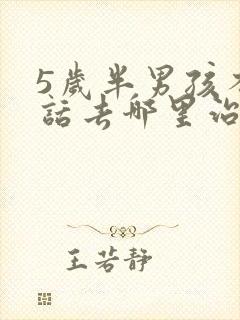 5歲半男孩不
話去哪里治
王若靜